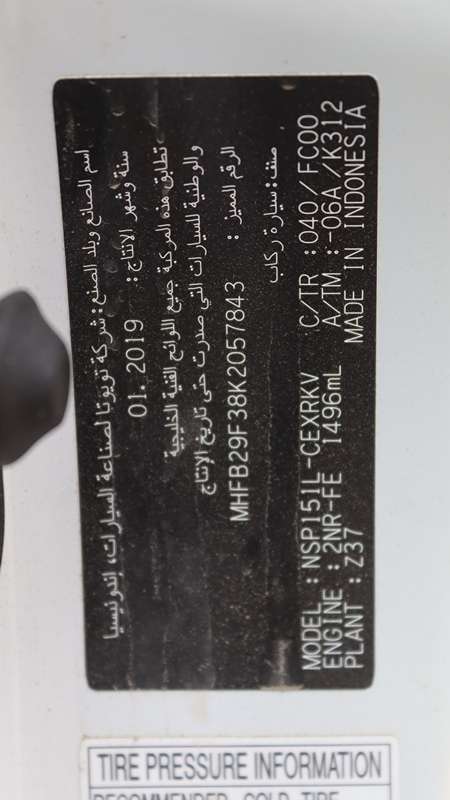 اسم الصانع وبلد الصنع: شركة تويوتا لصناعة السيارات، إندونيسيا
سنة وشهر الإنتاج: 01. 2019
تطابق هذه المركبة جميع اللوائح الفنية الخليجية
والوطنية للسيارات التي صدرت حتى تاريخ الإنتاج
الرقم المميز : MHFB29F38K2057843
صنف: سيارة ركاب
MODEL : NSP151L-CEXRKV C/TR : 040 / FC00
ENGINE : 2NR-FE 1496mL A/TM : -06A / K312
PLANT : Z37 MADE IN INDONESIA
TIRE PRESSURE INFORMATION
RECOMMENDED COLD TIRE